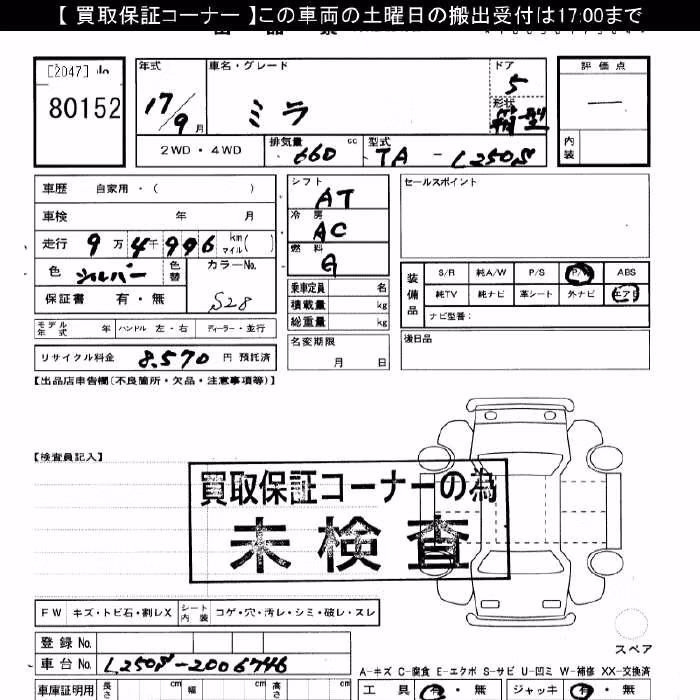 【 買取保証コーナー 】この車両の土曜日の搬出受付は17:00まで
[2047]
80152
年式 車名・グレード ドア 評価点
17/9月 ミラ 5 —
形状 箱型
内装
2WD・4WD 排気量 660 cc 型式 TA - L250S
車歴 自家用・( )
車検 年 月
走行 9万4千996 km マイル( )
色 シルバー 色替 カラーNo. S28
保証書 有・無
モデル年式 年 ハンドル 左・右 ディーラー・並行
リサイクル料金 8,570 円 預託済
シフト AT
冷房 AC
燃料 G
乗車定員 名
積載量 kg
総重量 kg
名変期限 月 日
セールスポイント
装備品 S/R 純A/W P/S P/W ABS
純TV 純ナビ 革シート 外ナビ エアB
ナビ型番：
後日品
【出品店申告欄(不良箇所・欠品・注意事項等)】
【検査員記入】
買取保証コーナーの為
未検査
FW キズ・トビ石・割レX シート内装 コゲ・穴・汚レ・シミ・破レ・スレ
スペア
登録 No.
車台 No. L250S-2006746
A-キズ C-腐食 E-エクボ S-サビ U-凹ミ W-補修 XX-交換済
車庫証明用 長さ cm 幅 cm 高さ cm 工具 有・無 ジャッキ 有・無